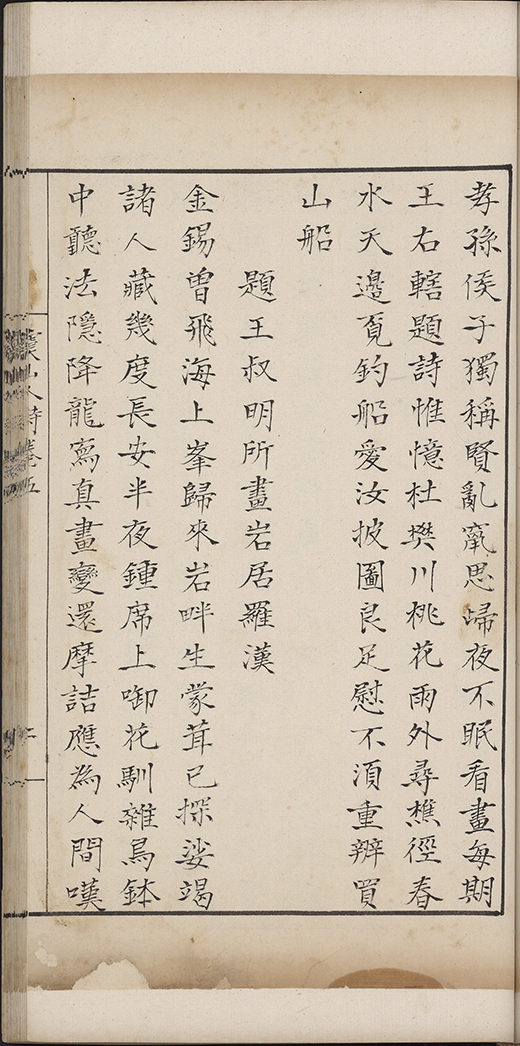 孝孫侯子獨稱賢亂竄思歸夜不眠看畫每期
王右轄題詩惟憶杜樊川桃花雨外尋樵徑春
水天邊覔釣船愛汝披圖良足慰不湏重辨買
山船
題王叔明所畫岩居羅漢
金錫曽飛海上峯歸來岩畔生蒙茸已探娑竭
諸人藏幾度長安半夜鍾席上啣花馴雜鳥鉢
中聽法隱降龍寫真畫變還摩詰應為人間嘆
山人詩卷五